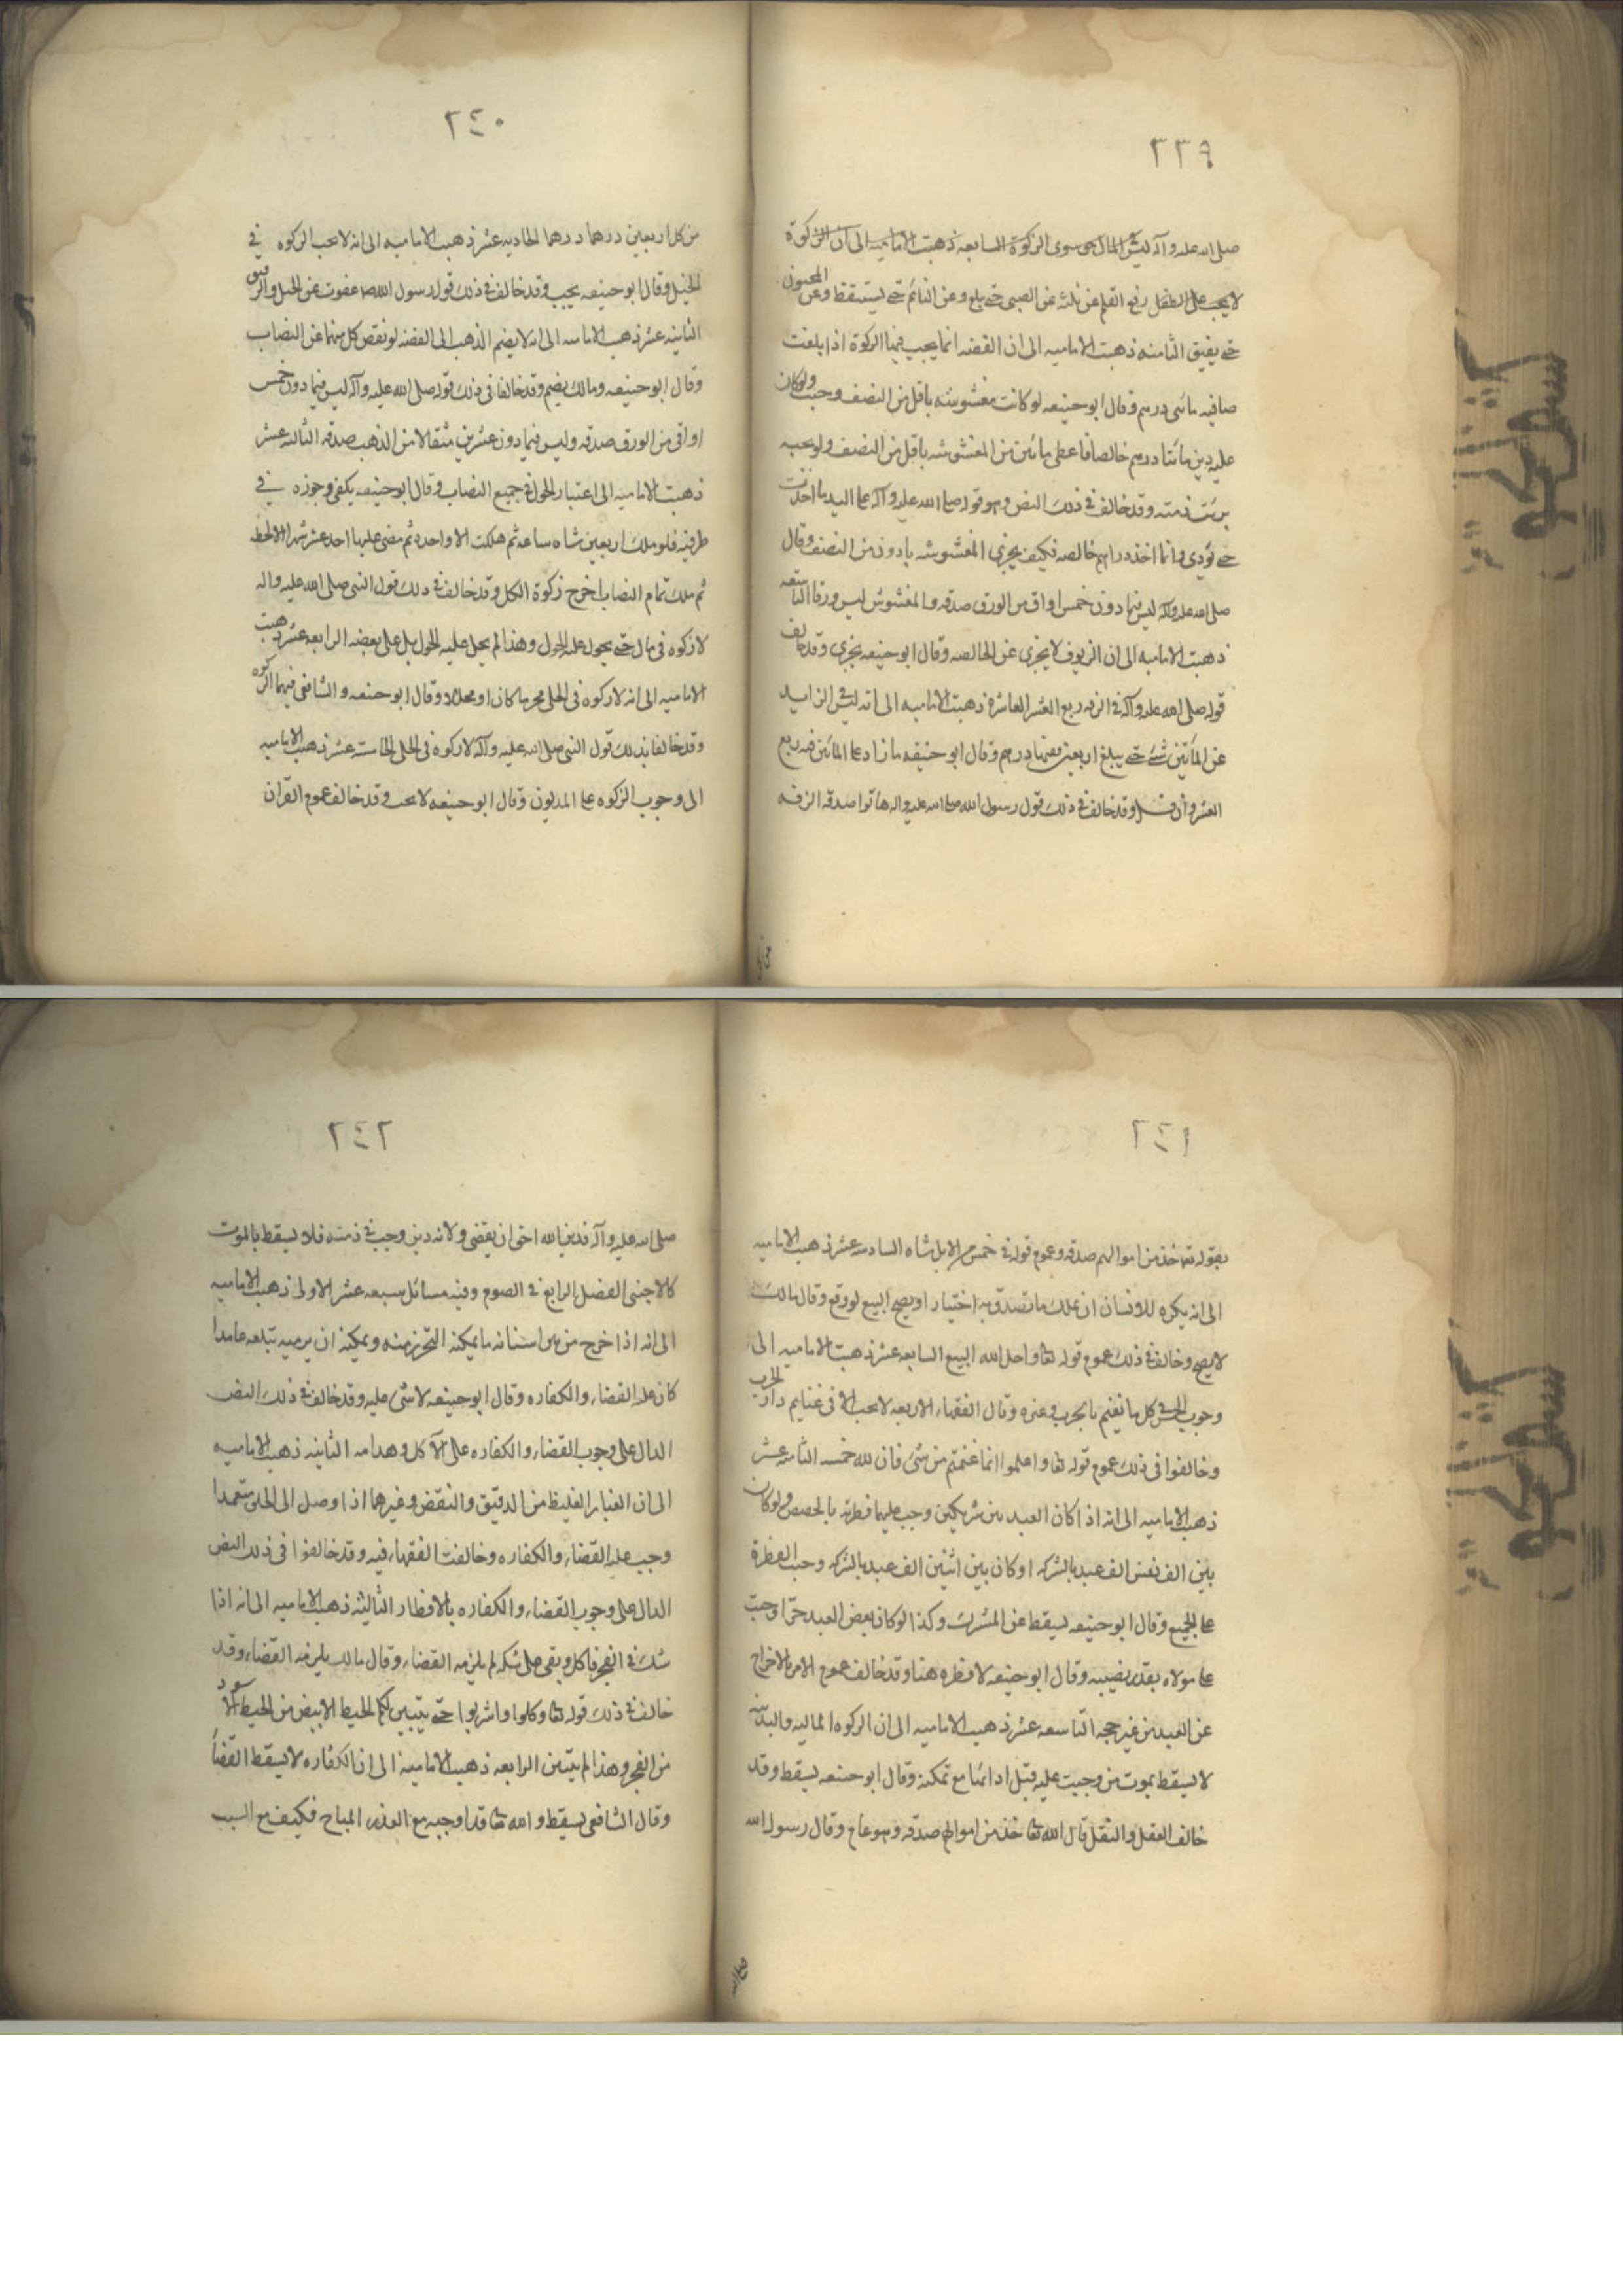 ٢٣٩
صلى الله عليه وآله ليس في المال حق سوى الزكوة السابعه ذهبت الاماميه الى ان الزكوة
لا يجب على الطفل رفع القلم عن ثلثه عن الصبى حتى يبلغ وعن النائم حتى يستيقظ وعن المجنون
حتى يفيق الثامنه ذهبت الاماميه الى ان الفضه انما يجب فيها الزكوة اذا بلغت
صافيه مأتى درهم وقال ابو حنيفه لو كانت مغشوشه باقل من النصف وجبت ولو كان
عليه دين مائتا درهم خالصا فاعطى مائتين من المغشوشه باقل من النصف ولو بحبه
برئت ذمته وقد خالف في ذلك النص وهو قوله صلى الله عليه وآله على اليد ما اخذت
حتى تؤدى وانما اخذ دراهم خالصه فكيف يجزى المغشوشه بادون من النصف وقال
صلى الله عليه وآله ليس فيما دون خمس اواق من الورق صدقه والمغشوش ليس ورقا التاسعه
ذهبت الاماميه الى ان الزيوف لا يجزى عن الخالصه وقال ابو حنيفه يجزى وقد خالف
قوله صلى الله عليه وآله في الرقه ربع العشر العاشرة ذهبت الاماميه الى انه ليس في الزايد
عن المأتين شئ حتى يبلغ اربعين ففيها درهم وقال ابو حنيفه ما زاد على المائتين فيه ربع
العشر وان قل وقد خالف في ذلك قول رسول الله صلى الله عليه واله هاتوا صدقه الرقه
٢٤٠
من كل اربعين درهما درهما الحاديه عشر ذهبت الاماميه الى انه لا يجب الزكوه في
الخيل وقال ابو حنيفه يجب وقد خالف في ذلك قول رسول الله ص عفوت عن الخيل والرقيق
الثانيه عشر ذهبت الاماميه الى انه لا يضم الذهب الى الفضه لو نقص كل منهما عن النصاب
وقال ابو حنيفه ومالك يضم وقد خالفا في ذلك قوله صلى الله عليه وآله ليس فيما دون خمس
اواقى من الورق صدقه وليس فيما دون عشرين مثقالا من الذهب صدقه الثالثه عشر
ذهبت الاماميه الى اعتبار الحول في جميع النصاب وقال ابو حنيفه يكفى وجوده في
طرفيه فلو ملك اربعين شاه ساعه ثم هلكت الا واحدة ثم مضى عليها احد عشر شهرا الا لحظه
ثم ملك تمام النصاب اخرج زكوة الكل وقد خالف في ذلك قول النبى صلى الله عليه واله
لا زكوه فى مال حتى يحول عليه الحول وهذا لم يحل عليه الحول بل على بعضه الرابعه عشر ذهبت
الاماميه الى انه لا زكوه فى الحلى محرما كان او محللا وقال ابو حنيفه والشافعى فيهما الزكوه
وقد خالفا بذلك قول النبى صلى الله عليه وآله لا زكوة فى الحلى الخامسة عشر ذهبت الاماميه
الى وجوب الزكوه على المديون وقال ابو حنيفه لا يجب وقد خالف عموم القرآن
٢٤١
بقوله تعا خذ من اموالهم صدقه وعموم قوله في خمس من الابل شاه السادسه عشر ذهبت الاماميه
الى انه يكره للانسان ان يملك ما تصدق به اختيارا ويصح البيع لو وقع وقال مالك
لا يصح وخالف في ذلك عموم قوله تعا واحل الله البيع السابعه عشر ذهبت الاماميه الى
وجوب الخمس في كل ما يغنم بالحرب وغيره وقال الفقهاء الاربعه لا يجب الا فى غنايم دار الحرب
وخالفوا فى ذلك عموم قوله تعا واعلموا انما غنمتم من شئ فان لله خمسه الثامنه عشر
ذهبت الاماميه الى انه اذا كان العبد بين شريكين وجب عليهما فطرته بالحصص ولو كان
بين الف نفس الف عبد بالشركه او كان بين اثنين الف عبد بالشركه وجبت الفطرة
على الجميع وقال ابو حنيفه يسقط عن المشترك وكذا لو كان بعض العبد حرا وجبت
على مولاه بقدر نصيبه وقال ابو حنيفه لا فطره هنا وقد خالف عموم الامر بالاخراج
عن العبد من غير حجه التاسعه عشر ذهبت الاماميه الى ان الزكوه الماليه والبدنيه
لا يسقط بموت من وجبت عليه قبل ادائها مع تمكنه وقال ابو حنيفه يسقط وقد
خالف العقل والنقل قال الله تعا خذ من اموالهم صدقه وهو عام وقال رسول الله
٢٤٢
صلى الله عليه وآله فدين الله احق ان يقضى ولانه دين وجب في ذمته فلا يسقط بالموت
كالاجنبى الفصل الرابع في الصوم وفيه مسائل سبعه عشر الاولى ذهبت الاماميه
الى انه اذا خرج من بين اسنانه ما يمكنه التحرز منه ويمكنه ان يرميه تبلعه عامدا
كان عليه القضاء والكفاره وقال ابو حنيفه لا شئ عليه وقد خالف في ذلك النص
الدال على وجوب القضاء والكفاره على الآكل وهذا منه الثانيه ذهبت الاماميه
الى ان الغبار الغليظ من الدقيق والنفض وغيرهما اذا وصل الى الحلق متعمدا
وجب عليه القضاء والكفاره وخالفت الفقهاء فيه وقد خالفوا فى ذلك النص
الدال على وجوب القضاء والكفاره بالافطار الثالثه ذهبت الاماميه الى انه اذا
شك في الفجر فاكل وبقى على شكه لم يلزمه القضاء وقال مالك يلزمه القضاء وقد
خالف في ذلك قوله تعا وكلوا واشربوا حتى يتبين لكم الخيط الابيض من الخيط الاسود
من الفجر وهذا لم يتبين الرابعه ذهبت الاماميه الى ان الكفاره لا يسقط القضاء
وقال الشافعى يسقط والله تعا قد اوجبه مع العذر المباح فكيف مع السبب